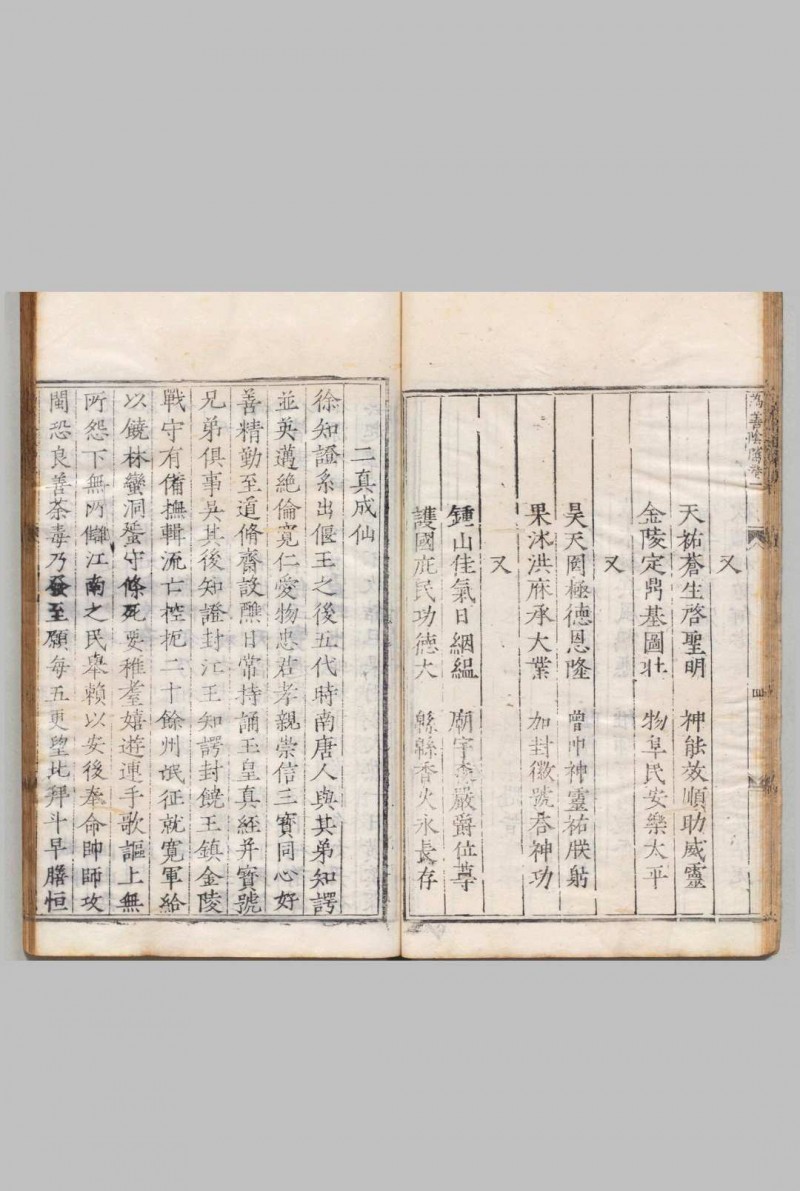 為善陰騭卷
四
又
天祐蒼生啓聖明 神能效順助威靈
金陵定鼎基圖壯 物阜民安樂太平
又
昊天罔極德恩隆 曾叩神靈祐朕躬
果沐洪庥承大業 加封徽號荅神功
又
鍾山佳氣日絪縕 廟宇嚴爵位尊
護國庇民功德大 緜緜香火永長存
二真成仙
徐知證系出偃王之後五代時南唐人與其弟知諤
並英邁絕倫寬仁愛物忠君孝親崇信三寶同心好
善精勤至道脩齋設醮日常持誦玉皇真經并寶號
兄弟俱事吳其後知證封江王知諤封饒王鎮金陵
戰守有備撫輯流亡控扼二十餘州氓征就寬軍給
以饒林蠻洞蜑守條死要稚耋嬉遊連手歌謳上無
所怨下無所讎江南之民舉賴以安後奉命帥師攻
閩恐良善荼毒乃發至願每五更望北拜斗早膳恒